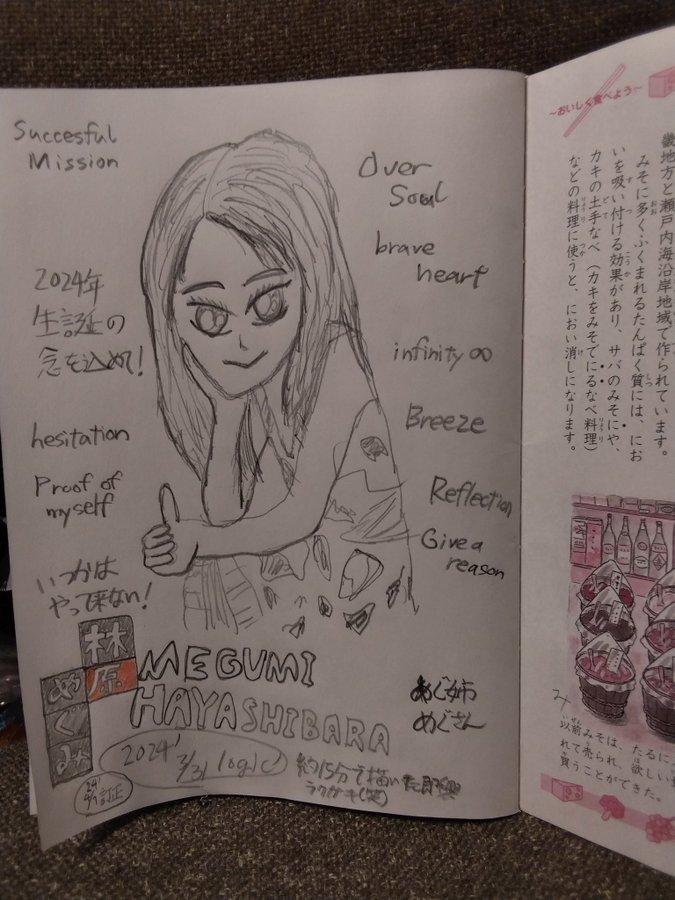 Succesful
Mission
Over
Soul
brave
heart
infinity∞
Breeze
Reflection
Give a
reason
2024年
生誕の
念を込めて!
hesitation
Proof of
myself
いつかは
やって来ない!
林
原
めぐみ
MEGUMI
HAYASHIBARA
めぐ姉
めぐさん
2024'
3/31 logic
約15分で描いた即興
ラクガキ(笑)
~おいしく食べよう~
畿地方と瀬戸内海沿岸地域で作られています。
みそに多くふくまれるたんぱく質には、にお
いを吸い付ける効果があり、サバのみそにや、
カキの土手なべ(カキをみそでにるなべ料理)
などの料理に使うと、におい消しになります。
以前みそは、たるに
れて売られ、欲しい
買うことができた。